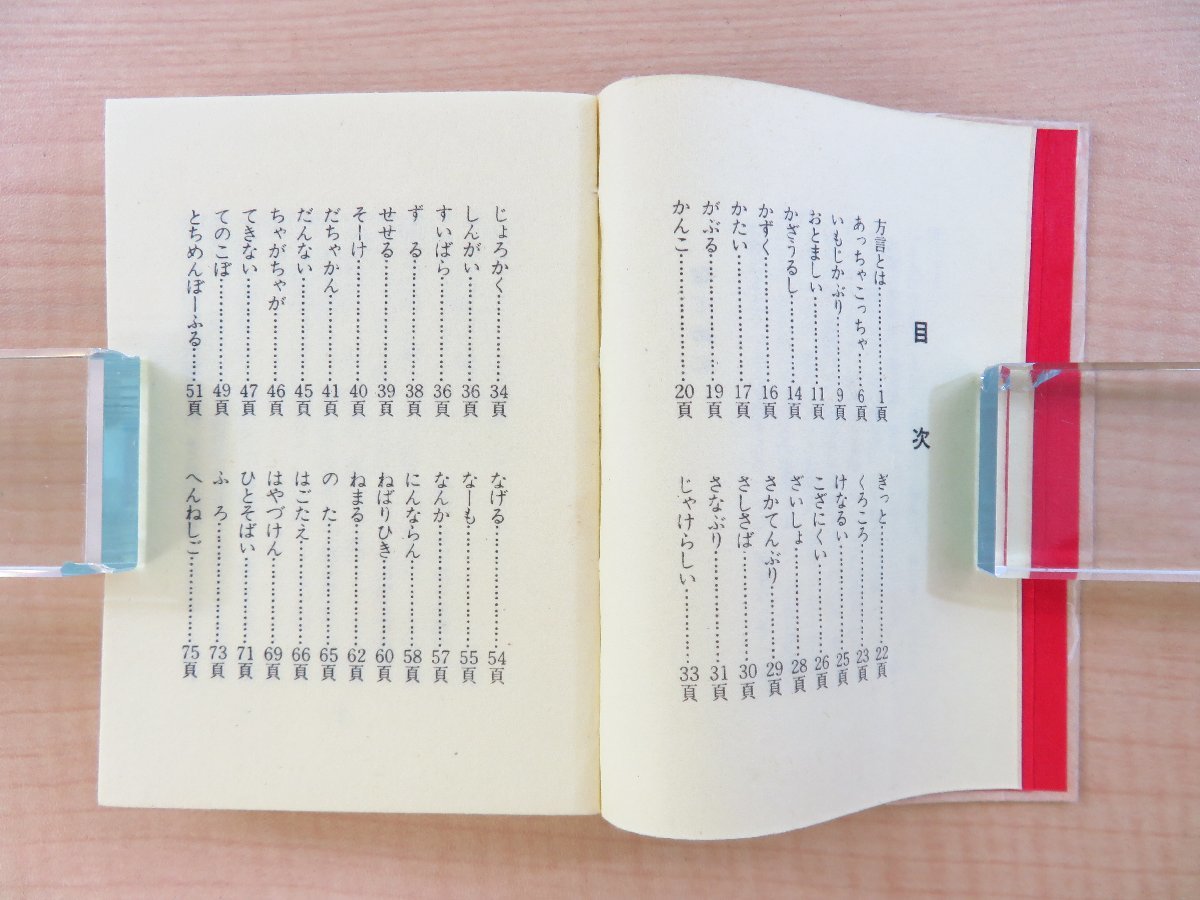 目次
方言とは……………1頁
あっちゃこっちゃ……6頁
いもじかぶり…………9頁
おとましい……………11頁
かざうるし……………14頁
かずく…………………16頁
かたい…………………17頁
がぶる…………………19頁
かんこ…………………20頁
ぎっと…………………22頁
くろころ………………23頁
けなるい………………25頁
こざにくい……………26頁
ざいしょ………………28頁
さかてんぶり…………29頁
さしさば………………30頁
さなぶり………………31頁
じゃけらしい…………33頁
じょろかく……………34頁
しんがい………………36頁
すいばら………………36頁
ずる……………………38頁
せせる…………………39頁
そーけ…………………40頁
だちゃかん……………41頁
だんない………………45頁
ちゃがちゃが…………46頁
てきない………………47頁
てのこぼ………………49頁
とちめんぼーふる……51頁
なげる…………………54頁
なーも…………………55頁
なんか…………………57頁
にんならん……………58頁
ねばりひき……………60頁
ねまる…………………62頁
のた……………………65頁
はごたえ………………66頁
はやづけん……………69頁
ひとそばい……………71頁
ふろ……………………73頁
へんねしご……………75頁